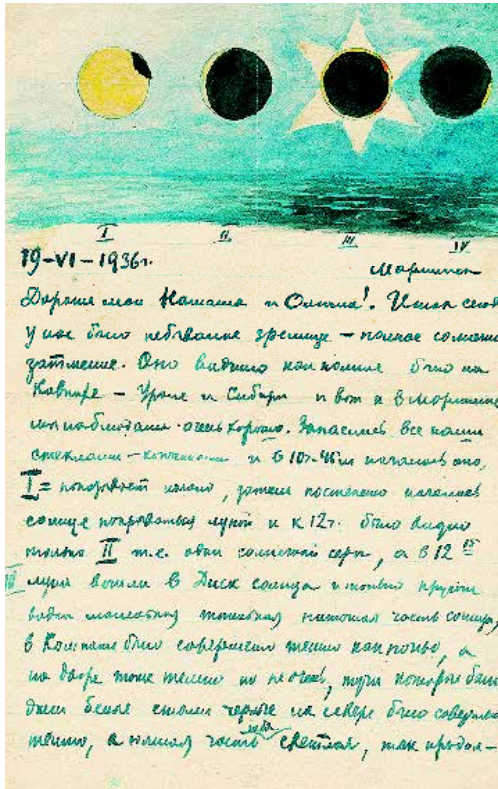 I II III IV
19-VI-1936г.
Мариинск
Дорогие мои Наташа и Олечка! Итак сегод
у нас было небывалое зрелище — полное солнечн
затмение. Оно видимо как полное было на
Кавказе — Урале и Сибири и вот и в Мариинске
мы наблюдали очень хорошо. Запаслись все мы
стеклами - копчеными и в 10ч.-45м началось оно,
I = показывает начало, затем постепенно начало
солнце покрываться луной и к 12ч. было видно
только II т.е. один солнечный серп, а в 12
III луна вошла в Диск солнца и только кругом
видна тоненькая часть солнца,
в Комнате было совершенно темно как ночью, а
на дворе тоже темно но не очень, тучи которые были
днем белые стали черные на севере было соверше
темно, а южная часть неба светлая, так продол-